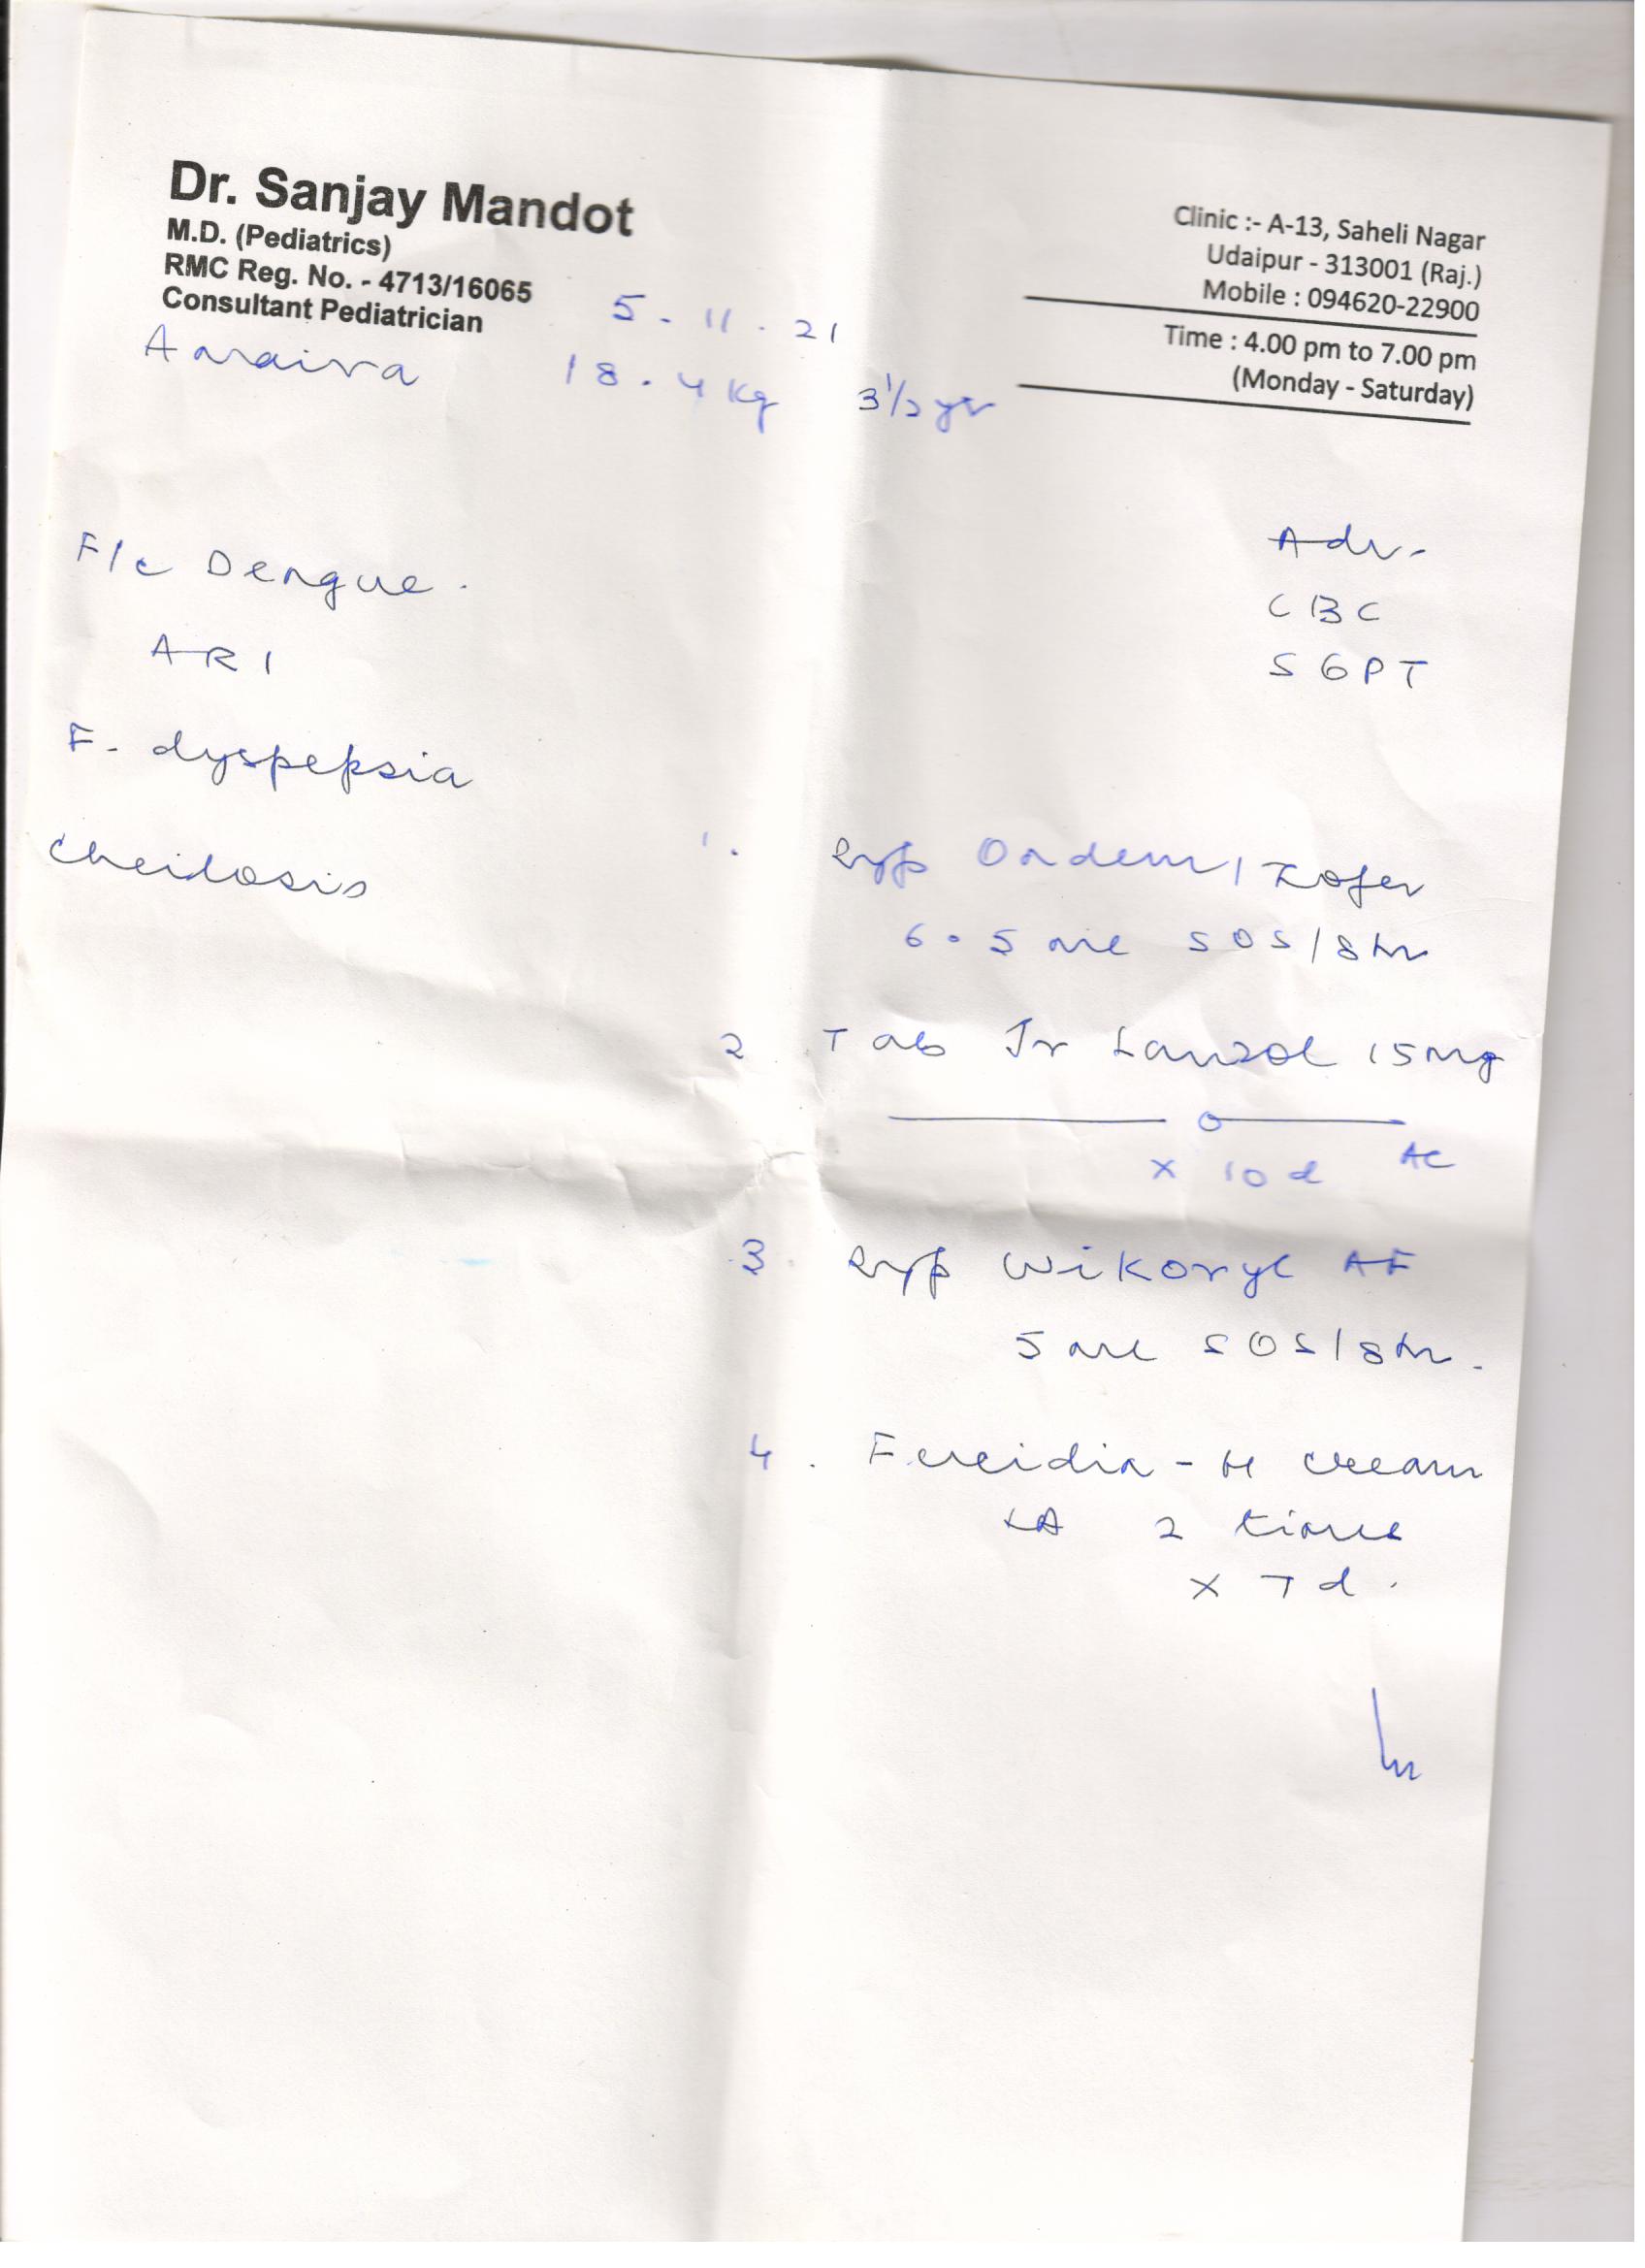 Dr. Sanjay Mandot
M.D. (Pediatrics)
RMC Reg. No. - 4713/16065
Consultant Pediatrician
Clinic :- A-13, Saheli Nagar
Udaipur - 313001 (Raj.)
Mobile : 094620-22900
Time : 4.00 pm to 7.00 pm
(Monday - Saturday)
5 - 11 . 21
18.4 kg 3½ yr
F/c Dengue.
ARI
F. dyspepsia
cheilosis
Adv-
CBC
SGPT
1. Syp Ondem / Zofer
6.5 ml SOS/8hr
2. Tab Jr Lanzol 15mg
o
x 10d AC
3. Syp Wikoryl AF
5 ml SOS/8hr.
4. - H cream
LA 2 times
x 7d.